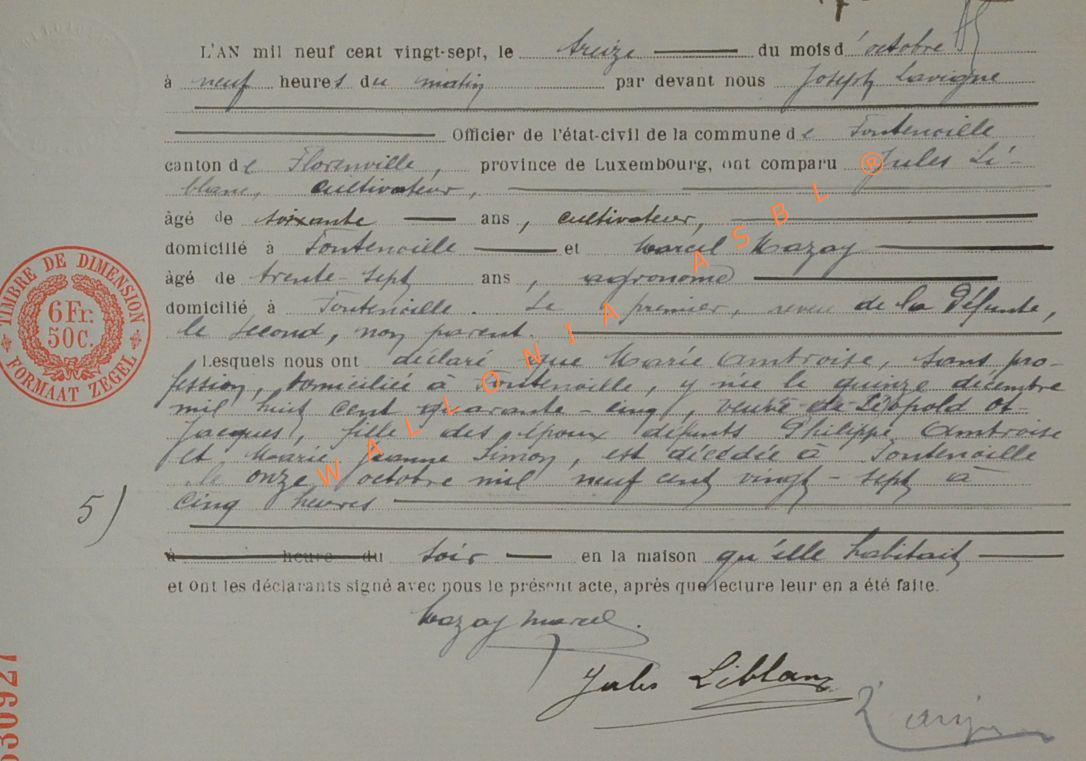 L'AN mil neuf cent vingt-sept, le treize du mois d'octobre
à neuf heures du matin par devant nous Joseph Lavigne
Officier de l'état-civil de la commune de Fontenoille
canton de Florenville, province de Luxembourg, ont comparu Jules Li-
blanc, cultivateur,
âgé de soixante ans, cultivateur,
domicilié à Fontenoille et Marcel Mazay
âgé de trente-sept ans, agronome
domicilié à Fontenoille. Le premier, neveu de la défunte,
le second, non parent.
Lesquels nous ont déclaré que Marie Ambroise, sans pro-
fession, domiciliée à Fontenoille, y née le quinze décembre
mil huit cent quarante-cinq, veuve de Léopold
Jacques, fille des époux défunts Philippe Ambroise
et Marie Jeanne Simon, est décédée à Fontenoille
le onze octobre mil neuf cent vingt-sept à
cinq heures
5)
à heure du soir en la maison qu'elle habitait
et ont les déclarants signé avec nous le présent acte, après que lecture leur en a été faite.
Mazay Marcel.
Jules Liblanc
TIMBRE DE DIMENSION
6Fr.
50C.
FORMAAT ZEGEL
530927
WALLONIA ASBL ®